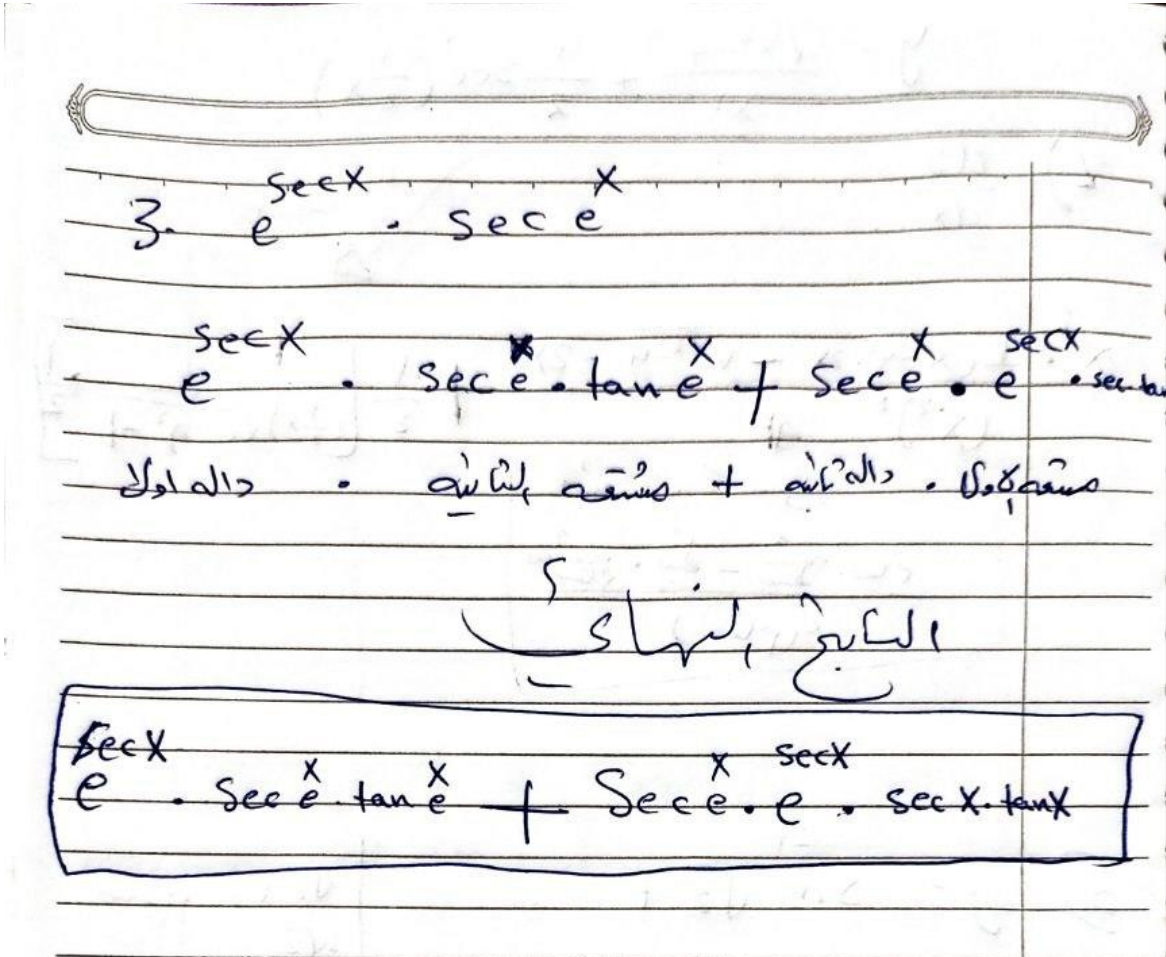 3. e^secx . sec e^x
e^secx . sec e^x . tan e^x + sec e^x . e^secx . sec tan
داله اولا . مشتقه الثانيه + داله ثانيه . مشتقه الاولا
الناتج النهائي
e^secx . sec e^x . tan e^x + Sec e^x . e^secx . sec x . tanx